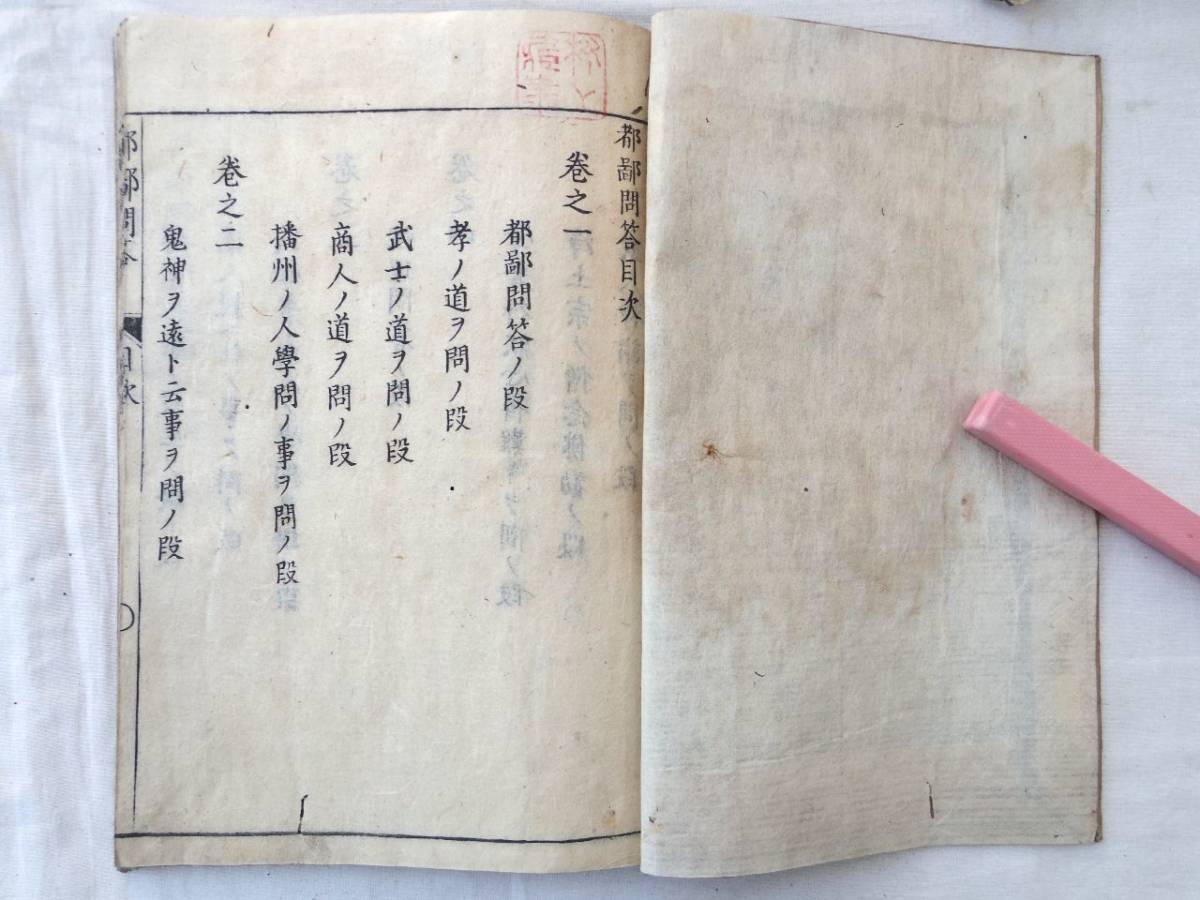 都鄙問答目次
卷之一
都鄙問答ノ段
孝ノ道ヲ問ノ段
武士ノ道ヲ問ノ段
商人ノ道ヲ問ノ段
播州ノ人學問ノ事ヲ問ノ段
卷之二
鬼神ヲ遠ト云事ヲ問ノ段
都鄙問答 目次